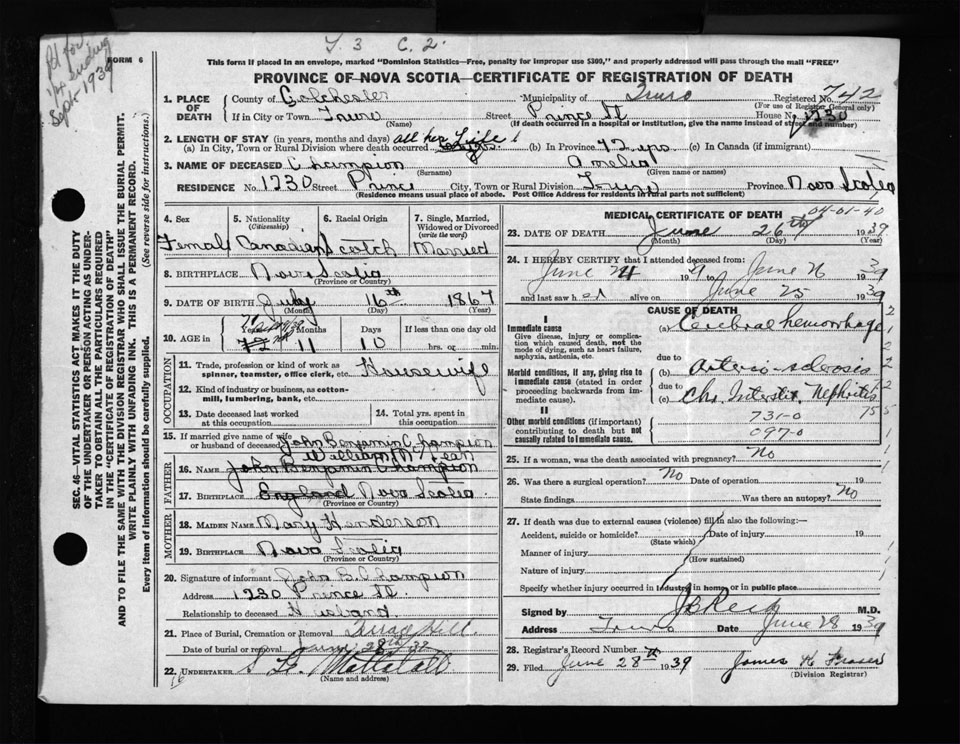 Y. 3 C. 2.
Pd for
1/4 ending
Sept. 1939
FORM 6
This form if placed in an envelope, marked "Dominion Statistics—Free, penalty for improper use $300, and properly addressed will pass through the mail "FREE"
PROVINCE OF NOVA SCOTIA—CERTIFICATE OF REGISTRATION OF DEATH
1. PLACE OF DEATH County of Colchester Municipality of Truro Registered No. 742
(For use of Registrar General only)
If in City or Town Truro (Name) Street Prince St House No. 1230
(If death occurred in a hospital or institution, give the name instead of street and number)
2. LENGTH OF STAY (in years, months and days) all her life
(a) In City, Town or Rural Division where death occurred (b) In Province 72 yrs. (c) In Canada (if immigrant)
3. NAME OF DECEASED Champion (Surname) Amelia (Given name or names)
RESIDENCE No. 1230 Street Prince City, Town or Rural Division Truro Province Nova Scotia
(Residence means usual place of abode. Post Office Address for residents in rural parts not sufficient)
SEC. 46—VITAL STATISTICS ACT MAKES IT THE DUTY
OF THE UNDERTAKER OR PERSON ACTING AS UNDER-
TAKER TO OBTAIN ALL THE PARTICULARS REQUIRED
IN THE "CERTIFICATE OF REGISTRATION OF DEATH"
AND TO FILE THE SAME WITH THE DIVISION REGISTRAR WHO SHALL ISSUE THE BURIAL PERMIT.
WRITE PLAINLY WITH UNFADING INK. THIS IS A PERMANENT RECORD.
Every item of information should be carefully supplied. (See reverse side for instructions.)
4. Sex Female
5. Nationality (Citizenship) Canadian
6. Racial Origin Scotch
7. Single, Married, Widowed or Divorced (write the word) Married
8. BIRTHPLACE Nova Scotia
(Province or Country)
9. DATE OF BIRTH July 16th 1867
(Month) (Day) (Year)
10. AGE in Years 71 72 Months 11 Days 10 If less than one day old hrs. or min.
OCCUPATION
11. Trade, profession or kind of work as spinner, teamster, office clerk, etc. Housewife
12. Kind of industry or business, as cotton-mill, lumbering, bank, etc.
13. Date deceased last worked at this occupation
14. Total yrs. spent in this occupation
15. If married give name of wife or husband of deceased John Benjamin Champion
FATHER
William McLean
16. NAME John Benjamin Champion
17. BIRTHPLACE England Nova Scotia
(Province or Country)
MOTHER
18. MAIDEN NAME Mary Henderson
19. BIRTHPLACE Nova Scotia
(Province or Country)
20. Signature of informant John B. Champion
Address 1230 Prince St.
Relationship to deceased Husband
21. Place of Burial, Cremation or Removal
Date of burial or removal June 28th 39
22. UNDERTAKER
(Name and address)
16
MEDICAL CERTIFICATE OF DEATH
04-01-40
23. DATE OF DEATH June 26th 1939
(Month) (Day) (Year)
24. I HEREBY CERTIFY that I attended deceased from:
June 24 19 to June 26 1939
and last saw her alive on June 25 1939
CAUSE OF DEATH
I
Immediate cause
Give disease, injury or complication which caused death, not the mode of dying, such as heart failure, asphyxia, asthenia, etc.
(a) Cerebral hemorrhage
due to
Morbid conditions, if any, giving rise to immediate cause (stated in order proceeding backwards from immediate cause).
(b) Arterio-sclerosis
due to
(c) Chr. Interstit. Nephritis
II
Other morbid conditions (if important) contributing to death but not causally related to immediate cause.
731-0
097-0
25. If a woman, was the death associated with pregnancy? No
26. Was there a surgical operation? No Date of operation 19
State findings Was there an autopsy? No
27. If death was due to external causes (violence) fill in also the following:—
Accident, suicide or homicide? (State which) Date of injury 19
Manner of injury (How sustained)
Nature of injury
Specify whether injury occurred in industry, in home, or in public place
Signed by J B Reid M.D.
Address Truro Date June 28 1939
28. Registrar's Record Number
29. Filed June 28 1939 James H Fraser
(Division Registrar)